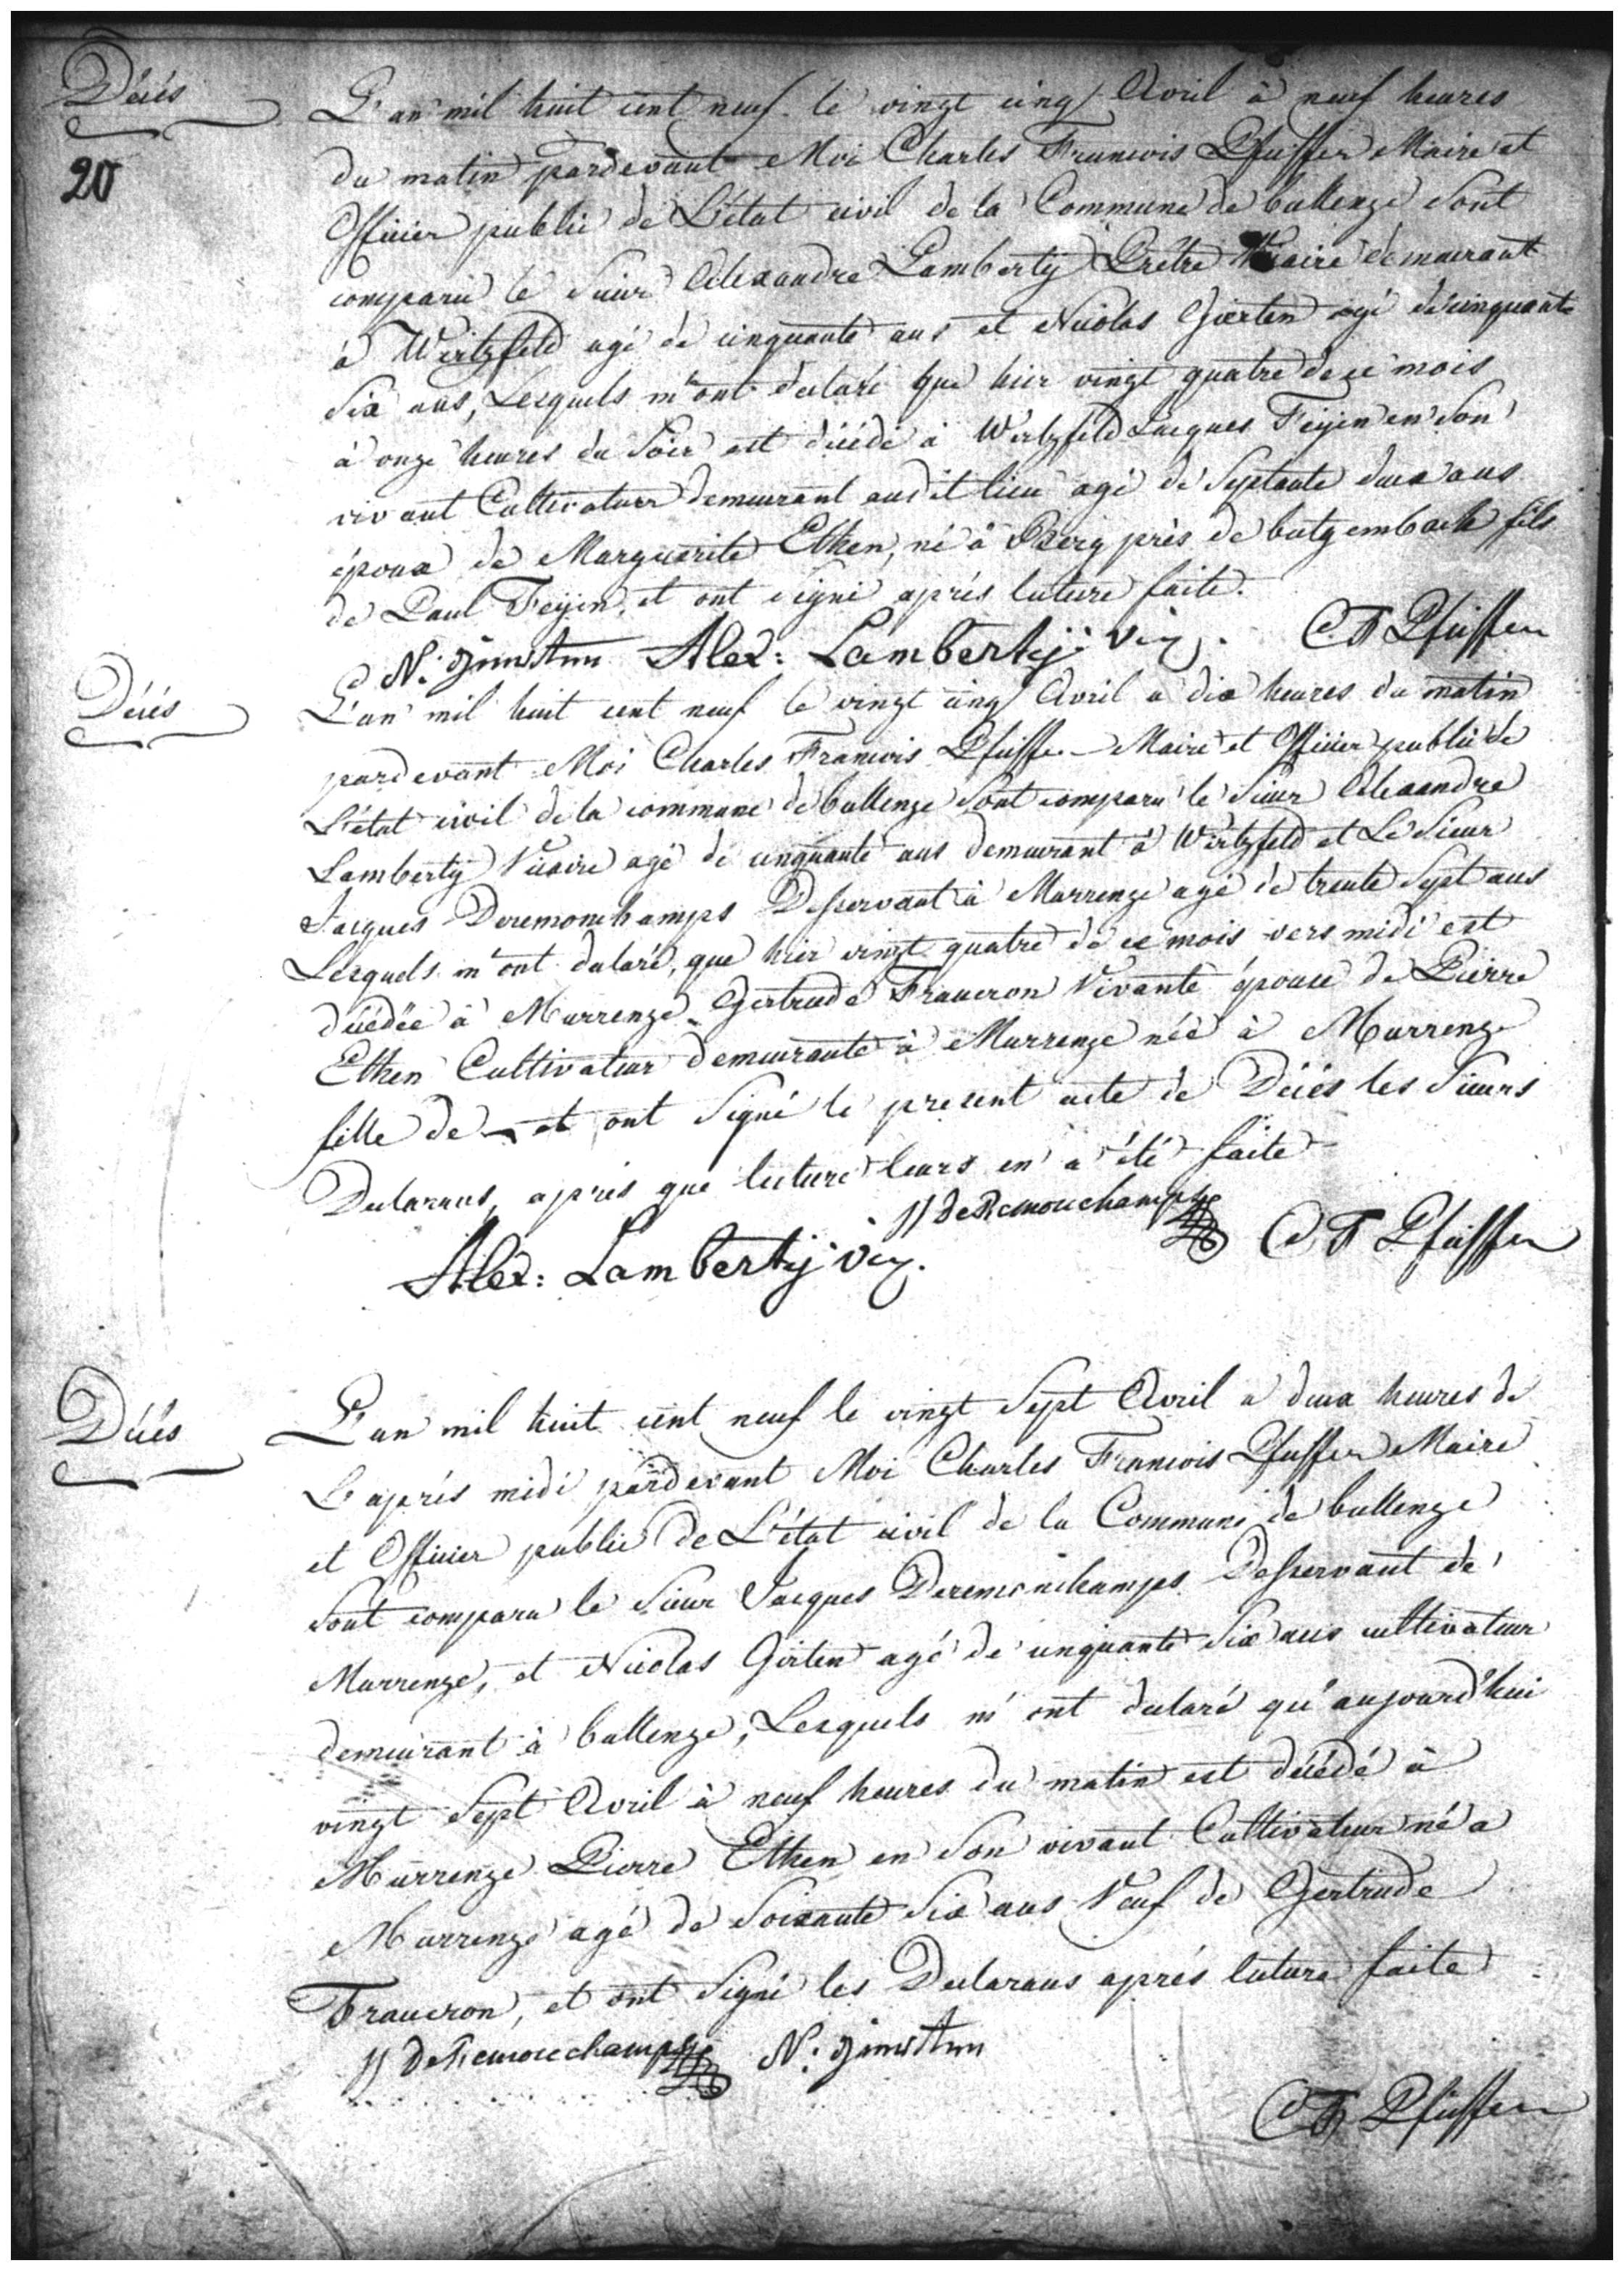 Décés
20
L'an mil huit cent neuf le vingt cinq Avril à neuf heures
du matin pardevant Moi Charles Francois Pfeiffer Maire et
Officier public de L'état civil de la Commune de bullenge Sont
comparu le Sieur Alexandre Lamberty Prêtre Vicaire demeurant
à Wirtzfeld agé de cinquante ans et Nicolas Gierten agé de cinquante
Six ans, Lesquels m'ont declaré que hier vingt quatre de ce mois
à onze heures du Soir est décédé à Wirtzfeld Jacques Feijen en Son
vivant Cultivateur demeurant audit lieu agé de Septante deux ans
époux de Marguerite Etken, né à Berg près de butgembach fils
de Paul Feijen, et ont signé après lecture faite.
N: Alex: Lamberty vic. CF Pfeiffer
Décés
L'an mil huit cent neuf le vingt cinq Avril a dix heures du matin
pardevant Moi Charles Francois Pfeiffer Maire et Officier public de
L'état civil de la commune de bullenge Sont comparu le Sieur Alexandre
Lamberty Vicaire agé de cinquante ans demeurant à Wirtzfeld et Le Sieur
Jacques Deremonchamps Desservant à Murrenge agé de trente Sept ans
Lesquels m'ont declaré, que hier vingt quatre de ce mois vers midi est
décédée à Murrenge Gertrude Fraucron Vivante épouse de Pierre
Etken Cultivateur demeurante à Murrenge née à Murrenge
fille de — et ont Signé le present acte de Décés les Sieurs
Declarans, après que lecture leurs en a été faite
Alex: Lamberty vic. JJ deRemouchamps CF Pfeiffer
Décés
L'an mil huit cent neuf le vingt Sept Avril a deux heures de
L'après midi pardevant Moi Charles Francois Pfeiffer Maire
et Officier public de L'état civil de la Commune de bullenge
Sont comparu le Sieur Jacques Deremonchamps Desservant de
Murrenge, et Nicolas Girten agé de cinquante Six ans cultivateur
demeurant à bullenge, Lesquels m'ont declaré qu'aujourd'hui
vingt Sept Avril à neuf heures du matin est décédé à
Murrenge Pierre Etken en Son vivant Cultivateur né a
Murrenge agé de Soixante Six ans Veuf de Gertrude
Fraucron, et ont Signé les Declarans après lecture faite
JJ deRemouchamps N:
CF Pfeiffer